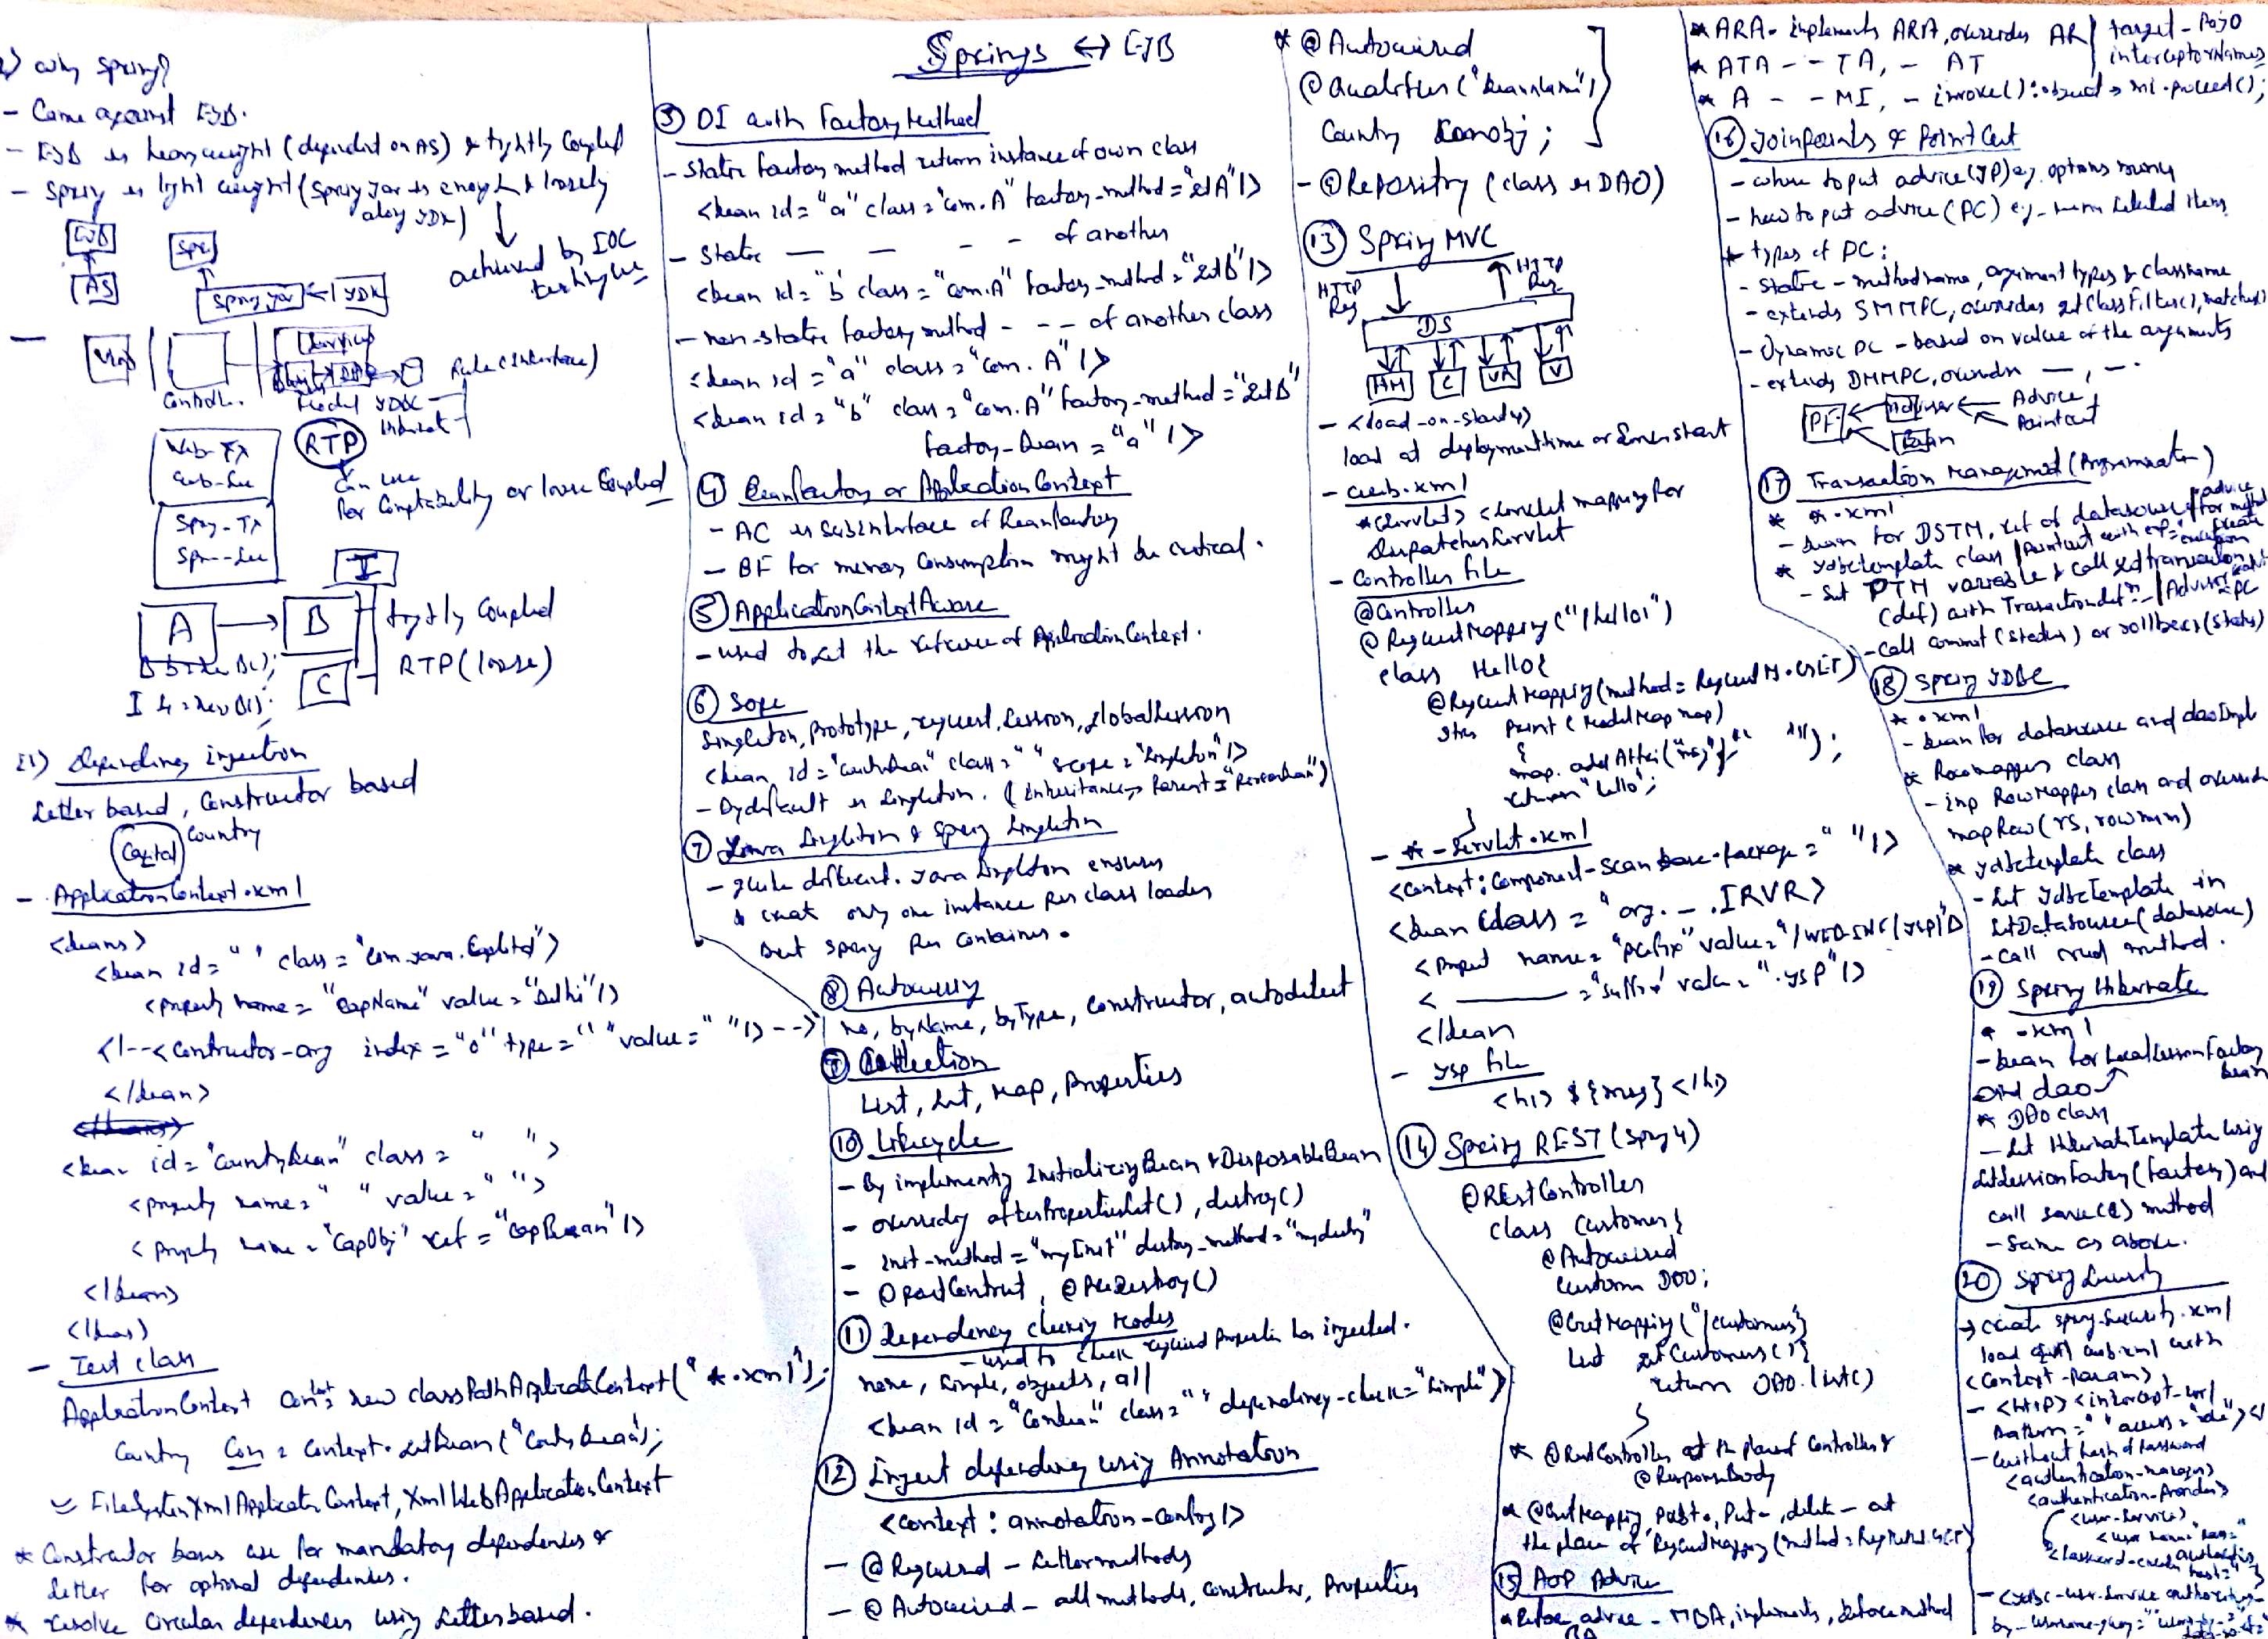 Springs ↔ EJB
1) Why Spring?
- Came against EJB.
- EJB is heavy weight (dependent on AS) & tightly coupled
- Spring is light weight (Spring jar is enough & loosely
along JDK)
achieved by IOC
technique
EJB
AS
Spr
Spring jar ← JDK
Controll.
Service
Model JDBC
Rule (Interface)
RTP
can use
for Comptability or loose Coupled
Spry-Tx
I
A → B
C
tightly Coupled
RTP (loose)
B b = new B();
I b = new B();
(2) Dependency injection
Setter based, Constructor based
Capital
Country
- ApplicationContext.xml
<beans>
<bean id=" " class="com.java.Capital">
<property name="CapName" value="Delhi"/>
<!--<contructor-arg index="0" type=" " value=" "/>-->
</bean>
</beans>
<bean id="CountryBean" class=" ">
<property name=" " value=" ">
<property name="CapObj" ref="CapBean"/>
</bean>
</beans>
- Test class
ApplicationContext context = new ClassPathApplicationContext("*.xml");
Country Con = Context.getBean("CountryBean");
FileSystemXmlApplication Context, XmlWebApplicationContext
* Constructor base use for mandatory dependencies &
setter for optional dependencies.
* resolve circular dependencies using setter based.
③ DI with FactoryMethod
- Static factory method return instance of own class
<bean id="a" class="com.A" factory-method="getA"/>
- Static — — - - of another
<bean id="b" class="com.A" factory-method="getB"/>
- non-static factory method - - - of another class
<bean id="a" class="com.A"/>
<bean id="b" class="com.A" factory-method="getB"
factory-bean="a"/>
④ Beanfactory or ApplicationContext
- AC is subinterface of Beanfactory
- BF for memory consumption might be critical.
⑤ ApplicationContextAware
- used to get the reference of ApplicationContext.
⑥ Scope
Singleton, Prototype, request, session, globalsession
<bean id="countryBean" class=" " scope="Singleton"/>
- By default is singleton. (inheritance → Parent="ParentBean")
⑦ Java Singleton & Spring Singleton
- quite different. Java Singleton ensures
& creat only one instance per class loader
but spring per container.
⑧ Autowiring
no, byName, byType, constructor, autodetect
⑨ Collection
List, Set, Map, Properties
⑩ Lifecycle
- By implementing InitializingBean & DisposableBean
- overriding afterPropertiesSet(), destroy()
- init-method="myInit" destroy-method="mydestry"
- @PostContruct, @PreDestroy()
⑪ Dependency checking modes
- used to check required properties has injected.
none, simple, objects, all
<bean id="Conbean" class=" " dependency-check="simple">
⑫ Inject dependency using Annotation
<context:annotation-config/>
- @Required - Setter methods
- @Autowired - all methods, constructor, Properties
* @Autowired
@Qualifier("BeanName")
Country Conobj;
- @Repository (class is DAO)
⑬ Spring MVC
HTTP
Req
HTTP
Res
DS
HM
C
VR
V
- <load-on-startup>
load at deployment time or server start
- web.xml
* <servlet> <servlet mapping for
DispatcherServlet
- Controller file
@Controller
@RequestMapping("/hello")
class Hello{
@RequestMapping(method=RequestM.GET)
print (ModelMap map)
{
map.addAttri("msg"," ");
return "hello";
}
- *-Servlet.xml
<context:component-scan base-package=" "/>
<bean class="org.-.IRVR>
<propert name="prefix" value="/WEB-INF/jsp/"/>
< ———— ="suffix" value=".jsp"/>
</bean
- JSP file
<h1> ${msg} </h1>
⑭ Spring REST (Spring 4)
@RestController
class Customer{
@Autowired
Custom DAO;
@GetMapping("/customers")
List getCustomers(){
return DAO.list()
}
* @RestController at the place of Controller &
@ResponseBody
* @GetMapping, Post-, Put-, delete- at
the place of RequestMapping(method=ReqMethod.GET)
⑮ AOP Advice
* Before advice - MBA, implements, before method
BA
* ARA - implements ARA, overrides AR
* ATA - - TA, - AT
* A - - MI, - invoke(): object → mi.proceed();
target - POJO
interceptorNames
⑯ Joinpoints & PointCut
- where to put advice (JP) eg. options menu
- how to put advice (PC) eg. menu selected items
* types of PC:
- static - methodname, argument types & classname
- extends SMMPC, overrides getClassFilter(), matches()
- Dynamic PC - based on value of the arguments
- extends DMMPC, overrides —, -.
PF
Advisor ← Advice
Pointcut
⑰ Transaction Management (Programmatic)
* *.xml
- bean for DSTM, ref of datasource
* jdbctemplate class
- Set PTM variable & call getTransaction
(def) with TransactionDefn
- Call commit(status) or rollback(status)
⑱ Spring JDBC
* *.xml
- bean for datasource and daoImpl
* Rowmapper class
- imp RowMapper class and override
mapRow(rs, rownum)
* jdbctemplate class
- Set JdbcTemplate in
setDatasource(datasource)
- Call crud method.
⑲ Spring Hibernate
* .xml
- bean for LocalSessionFactory
bean
and dao
* DAO class
- Set HibernateTemplate using
setSessionFactory(factory) and
call save(e) method
- Same as above.
⑳ Spring Security
→ create spring-security.xml
load it web.xml with
<context-param>
- <http> <intercept-url
pattern=" " access="role"></
- without hash of password
<authentication-manager>
<authentication-provider>
<user-service>
<user name="
authorities
hash="
- <jdbc-user-service authorities-
by-username-query="